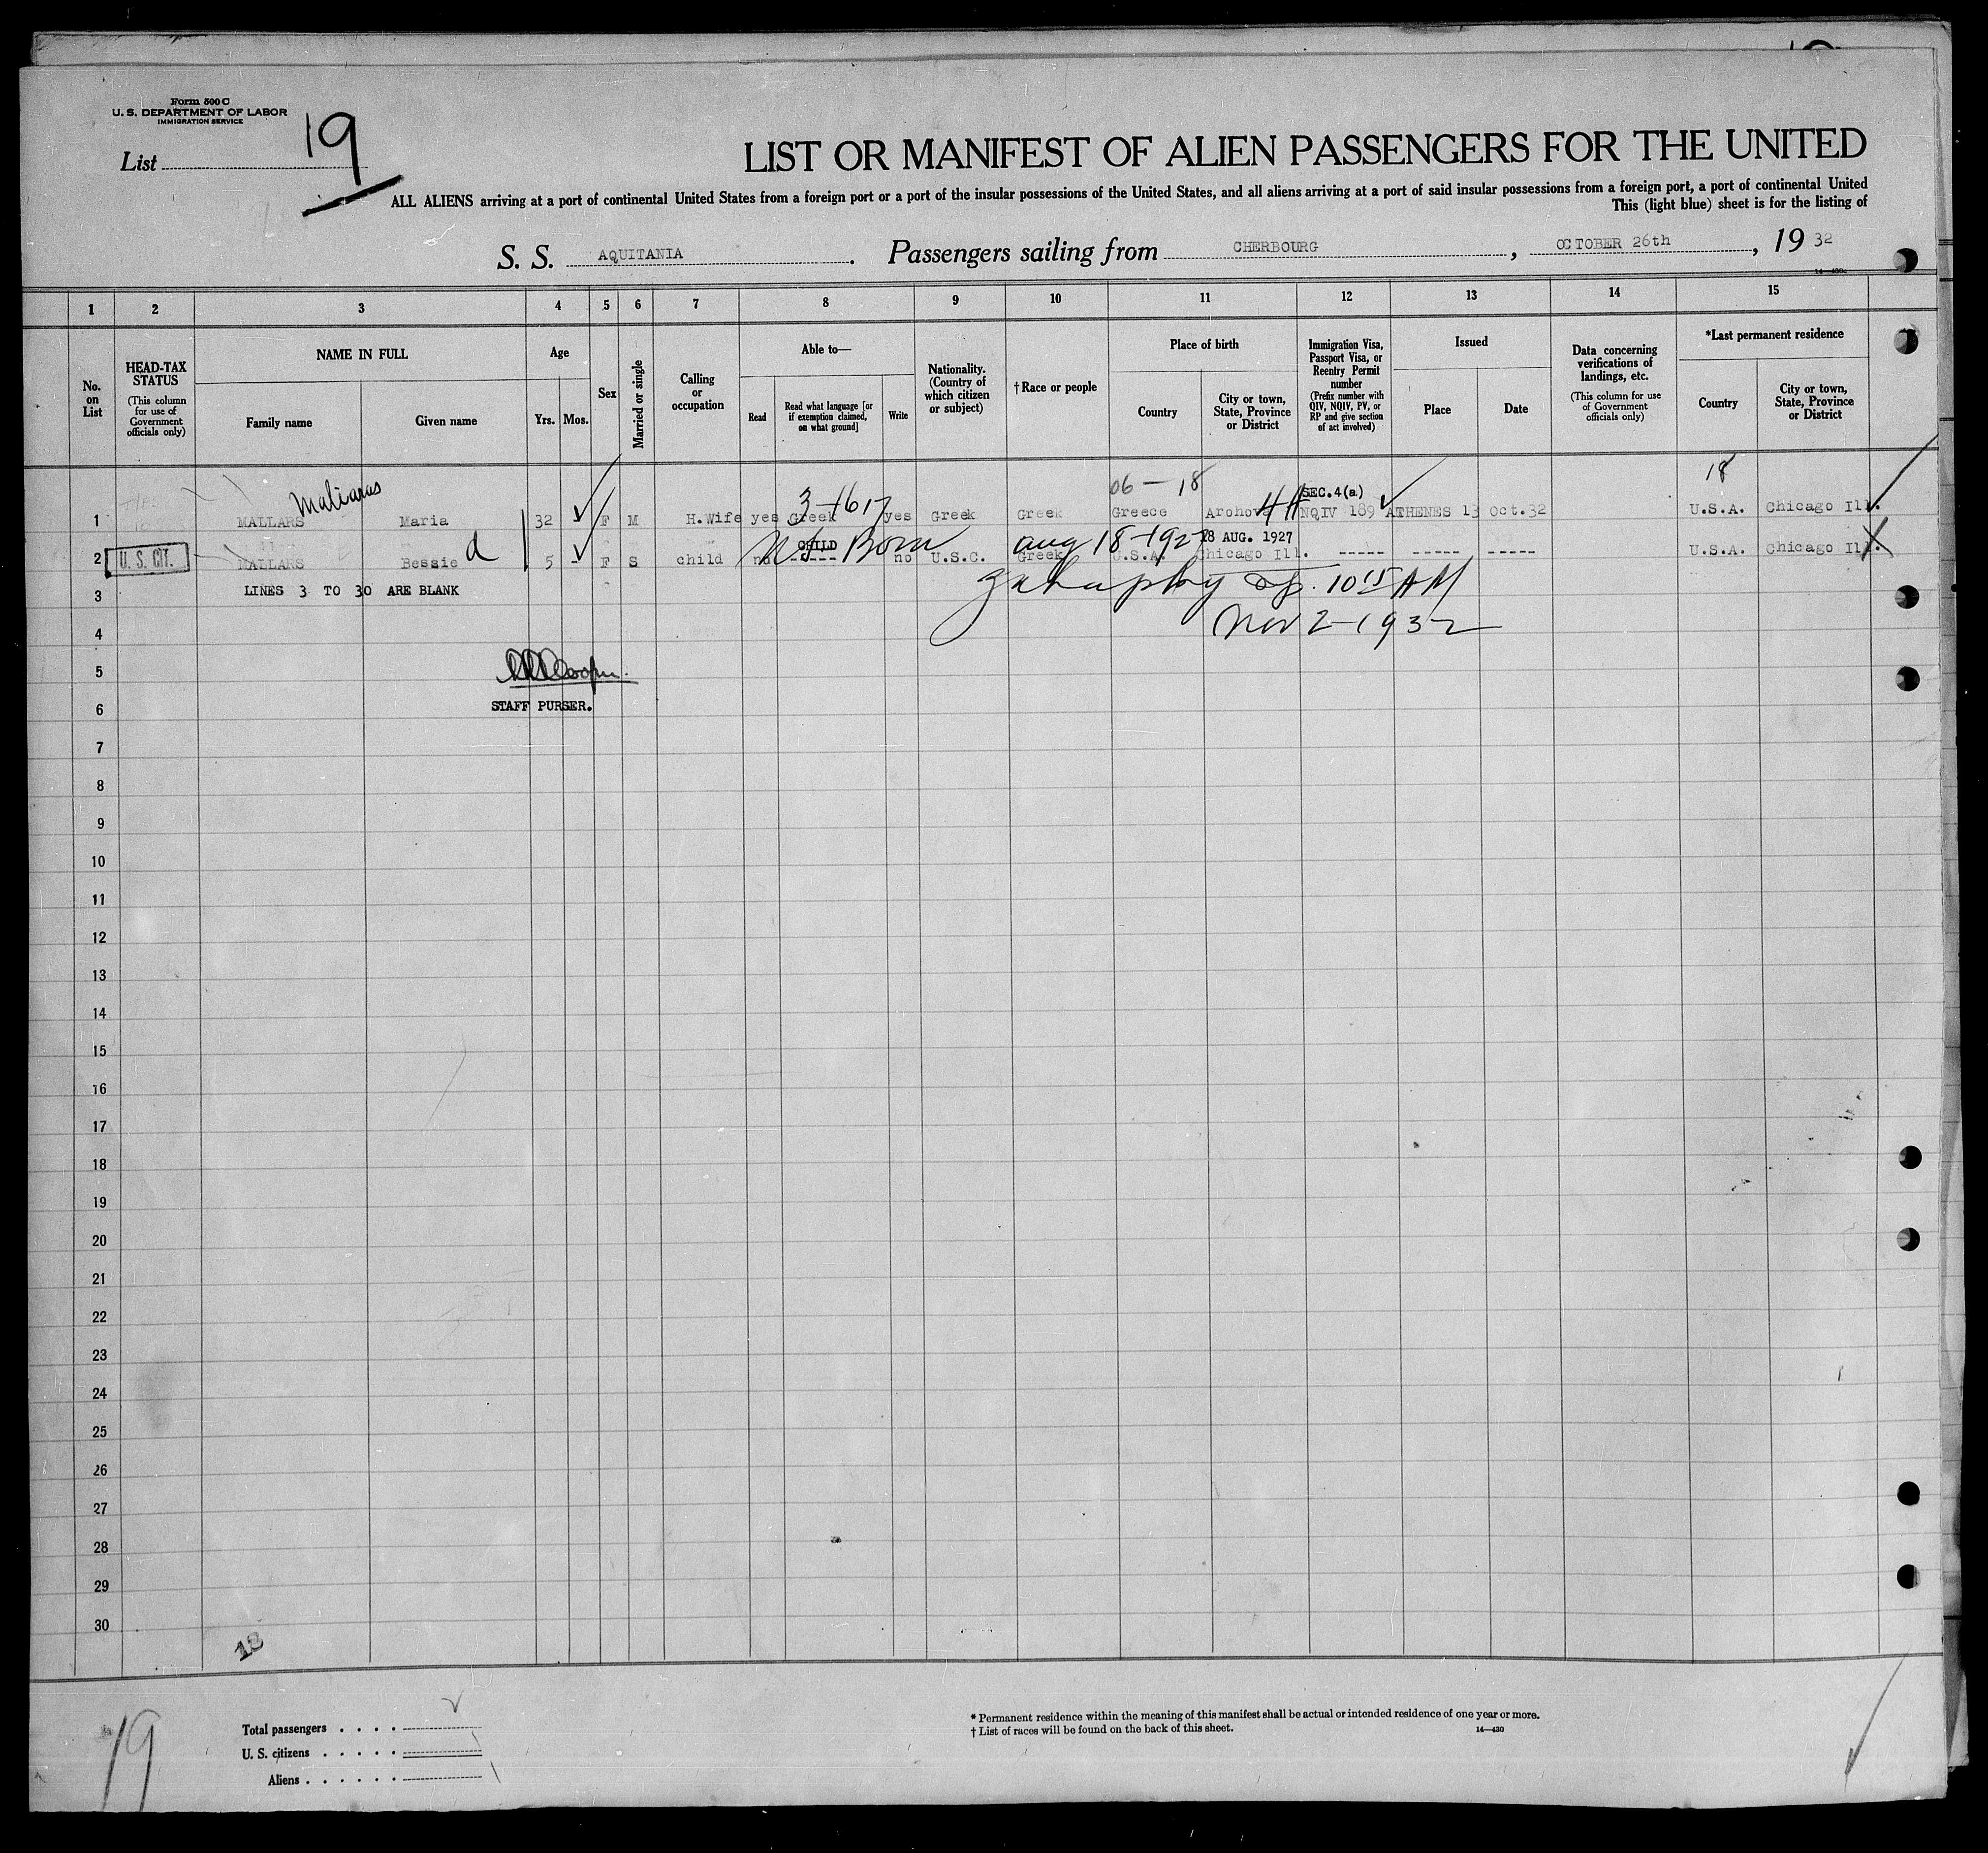 Form 500 C
U. S. DEPARTMENT OF LABOR
IMMIGRATION SERVICE
List 19
LIST OR MANIFEST OF ALIEN PASSENGERS FOR THE UNITED
ALL ALIENS arriving at a port of continental United States from a foreign port or a port of the insular possessions of the United States, and all aliens arriving at a port of said insular possessions from a foreign port, a port of continental United
This (light blue) sheet is for the listing of
S. S. AQUITANIA. Passengers sailing from CHERBOURG, OCTOBER 26th, 19 32
14—430c
1 2 3 4 5 6 7 8 9 10 11 12 13 14 15
No. on List
HEAD-TAX STATUS
(This column for use of Government officials only)
NAME IN FULL
Family name Given name
Age
Yrs. Mos.
Sex
Married or single
Calling or occupation
Able to—
Read
Read what language [or if exemption claimed, on what ground]
Write
Nationality. (Country of which citizen or subject)
† Race or people
Place of birth
Country
City or town, State, Province or District
Immigration Visa, Passport Visa, or Reentry Permit number
(Prefix number with QIV, NQIV, PV, or RP and give section of act involved)
Issued
Place Date
Data concerning verifications of landings, etc.
(This column for use of Government officials only)
*Last permanent residence
Country
City or town, State, Province or District
Maliaras 3-1617 06 — 18 SEC. 4(a) 18
1 MALLARS Maria 32 - F M H.Wife yes Greek yes Greek Greek Greece Arohova NQIV 189 ATHENES 13 Oct. 32 U.S.A. Chicago Ill.
CHILD U.S. Born Aug 18-1927 18 AUG. 1927
2 U. S. CIT. MALLARS Bessie d 5 - F S child no ----- no U.S.C. Greek U.S.A. Chicago Ill. ----- ----- ----- U.S.A. Chicago Ill.
3 LINES 3 TO 30 ARE BLANK
10 15 AM
4 Nov 2-1932
5
6 STAFF PURSER.
7
8
9
10
11
12
13
14
15
16
17
18
19
20
21
22
23
24
25
26
27
28
29
30
18
19
Total passengers . . . .
U. S. citizens . . . . .
Aliens . . . . . .
* Permanent residence within the meaning of this manifest shall be actual or intended residence of one year or more.
† List of races will be found on the back of this sheet. 14—430